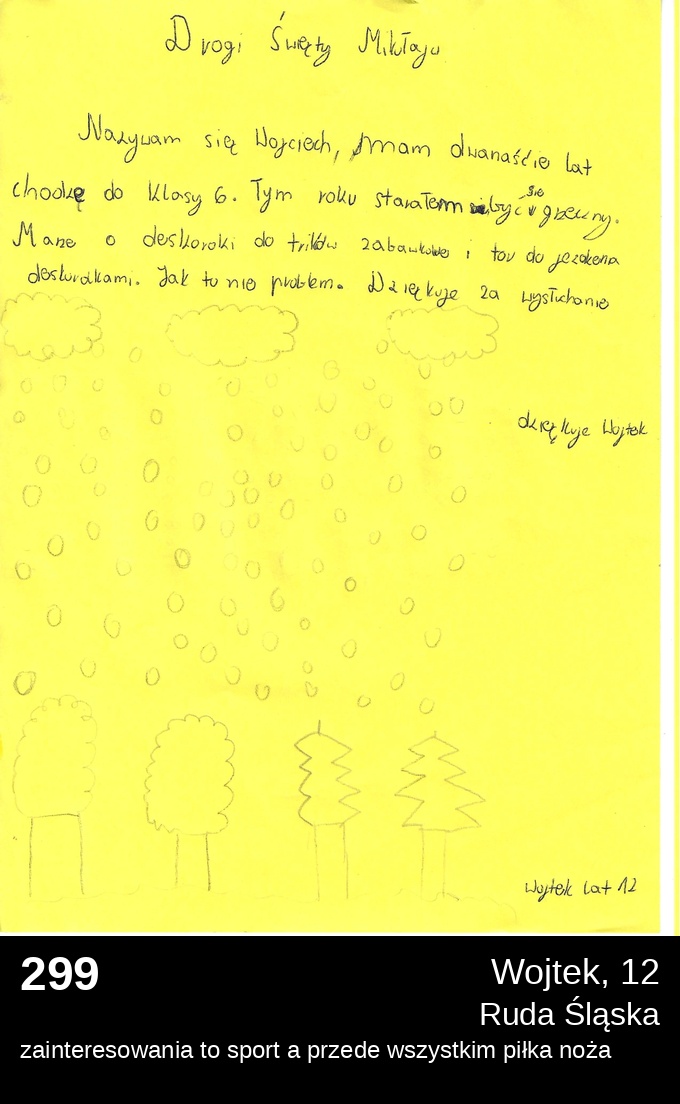 Drogi Święty Mikołaju
Nazywam się Wojciech, mam dwanaście lat
chodzę do klasy 6. Tym roku starałem się być grzeczny.
Marze o deskorolki do trików zabawkowe i tor do jezdzenia
deskorolkami. Jak to nie problem. Dziękuje za wysłuchanie
dziękuje Wojtek
Wojtek lat 12
299
Wojtek, 12
Ruda Śląska
zainteresowania to sport a przede wszystkim piłka noża